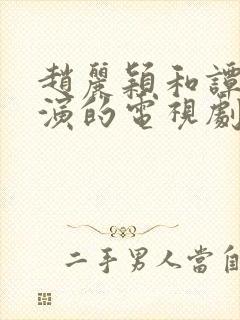 趙麗穎和譚
演的電視劇
二手男人當自